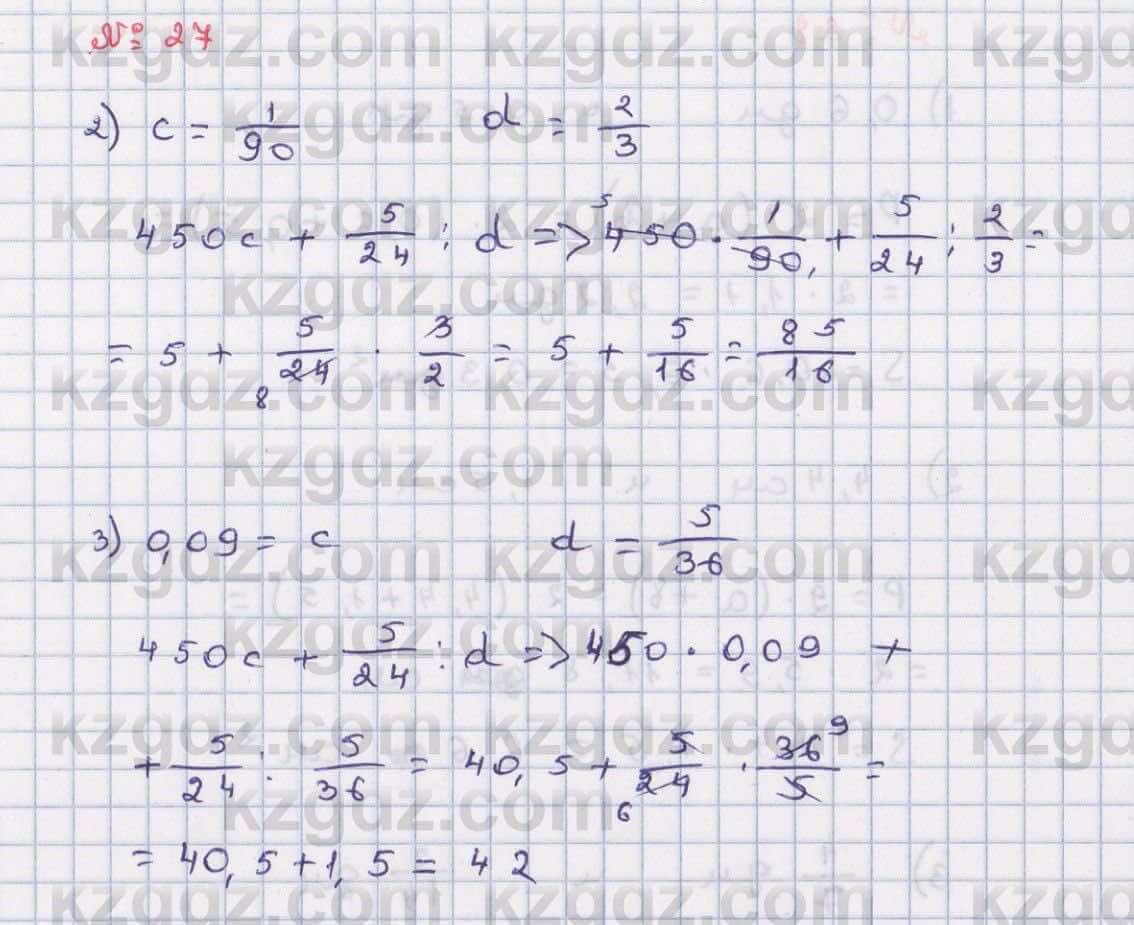 № 27
2) c = 1/90 d = 2/3
450c + 5/24 : d => 450 · 1/90 + 5/24 : 2/3 =
= 5 + 5/24 · 3/2 = 5 + 5/16 = 85/16
3) 0,09 = c d = 5/36
450c + 5/24 : d => 450 · 0,09 +
+ 5/24 : 5/36 = 40,5 + 5/24 · 36/5 =
= 40,5 + 1,5 = 42
kzgdz.com